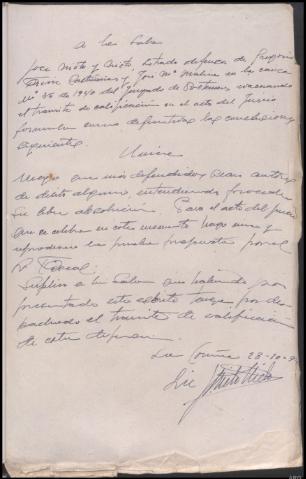 A la Sala
José Prieto y Prieto, Letrado defensor de Gregorio
y José Mª Molina en la causa
Nº 36 de 1940 del Juzgado de evacuando
el tramite de calificación en el acto del Juicio
formula como definitivas las conclusiones
siguientes
Unica
Niego que mis defendidos sean autores
de delito alguno, entendiendo procede
su libre absolución. Para el acto del juicio
que se celebra en este momento hago mia y
reproduzco la prueba propuesta por el
Fiscal.
Suplico a la Sala que habiendo por
presentado este escrito tenga por des
pachado el tramite de calificación
de esta defensa.
La Coruña 28-10-
Lic